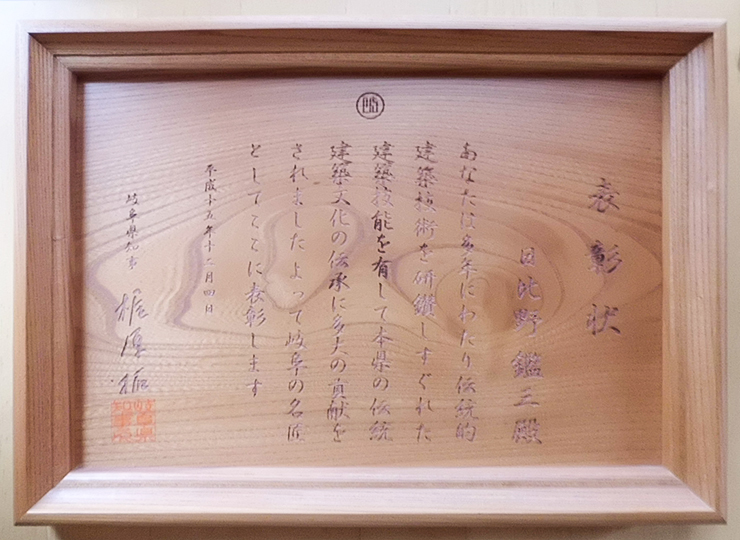 表彰状
日比野鑑三殿
あなたは多年にわたり伝統的
建築技術を研鑽しすぐれた
建築技能を有して本県の伝統
建築文化の伝承に多大の貢献を
されましたよって岐阜の名匠
としてここに表彰します
平成十五年十二月四日
岐阜県知事
梶原拓